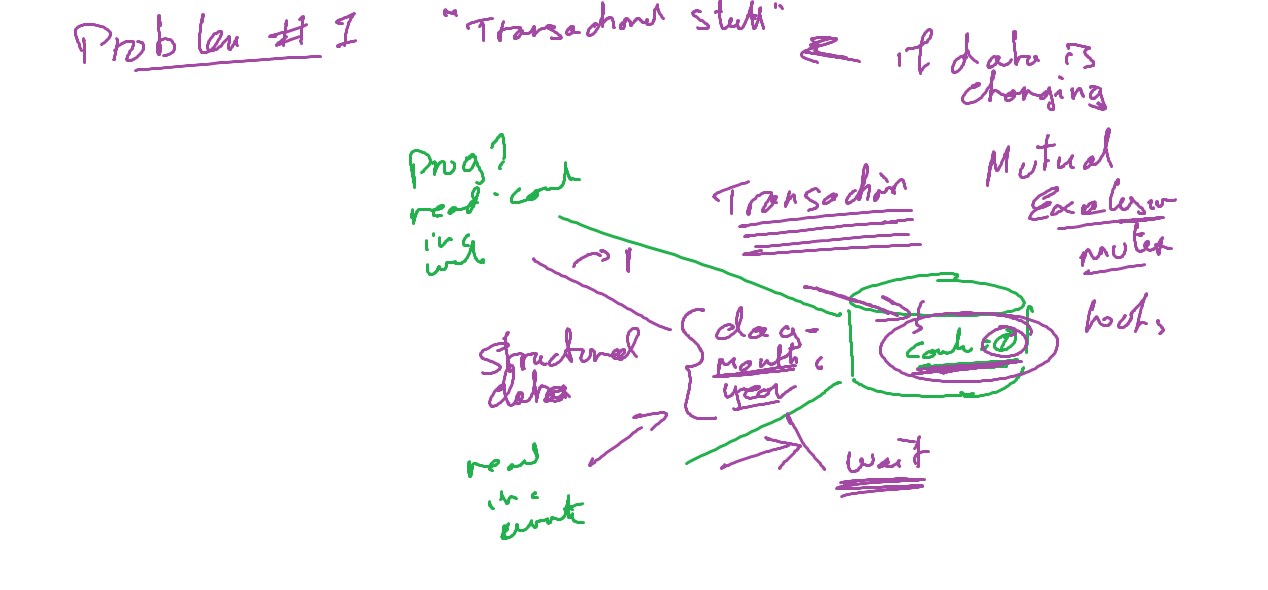 Problem # 1
"Transactional stuff"
if data is
changing
Prog 1
read count
inc
write
Transaction
Mutual
Exclusion
mutex
locks
Structured
data
day
month
year
count =
read
inc
write
wait